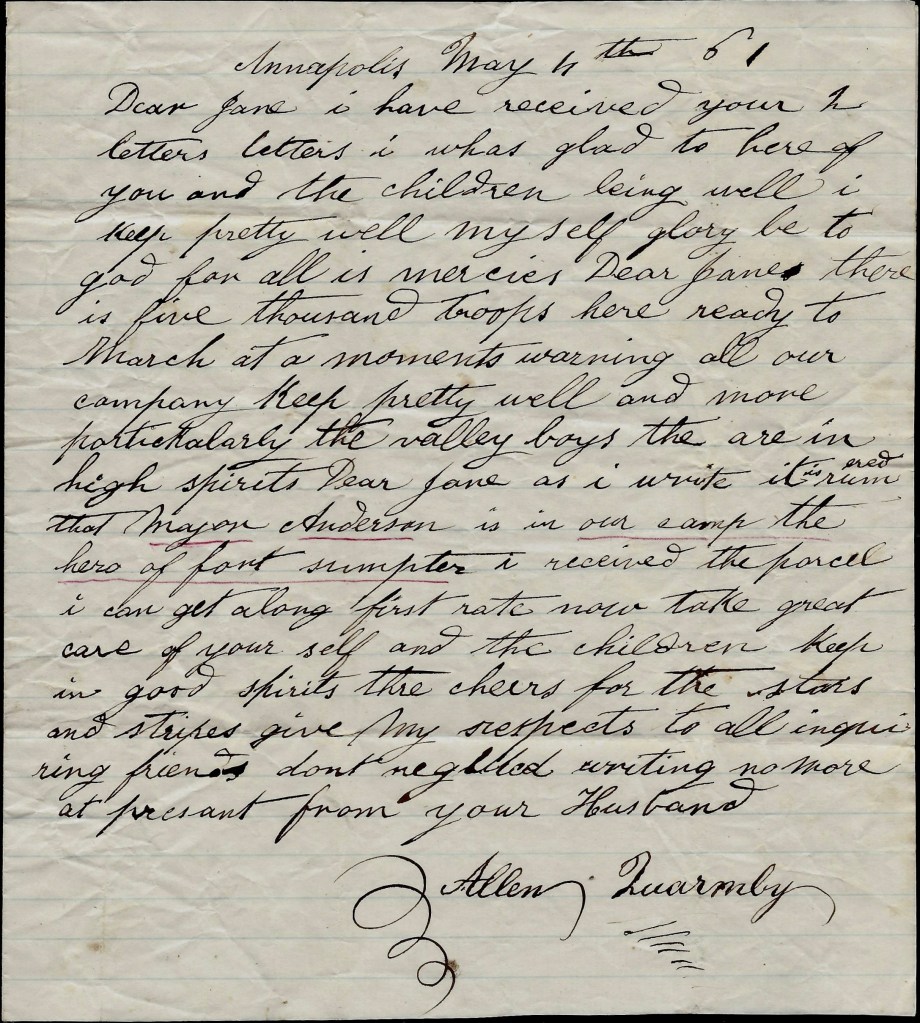 Annapolis May 4th 61
Dear Jane i have received your 2
letters letters i whas glad to here of
you and the children being well i
keep pretty well my self glory be to
god for all is mercies Dear Jane there
is five thousand troops here ready to
March at a moments warning all our
company keep pretty well and more
portickalarly the valley boys the are in
high spirits Dear Jane as i write it is rumered
that Major Anderson is in our camp the
hero of fort sumpter i received the parcel
i can get along first rate now take great
care of your self and the children keep
in good spirits thre cheers for the stars
and stripes give My respects to all inqui
ring friends dont neglded writing no more
at presant from your Husband
Allen Quarmby